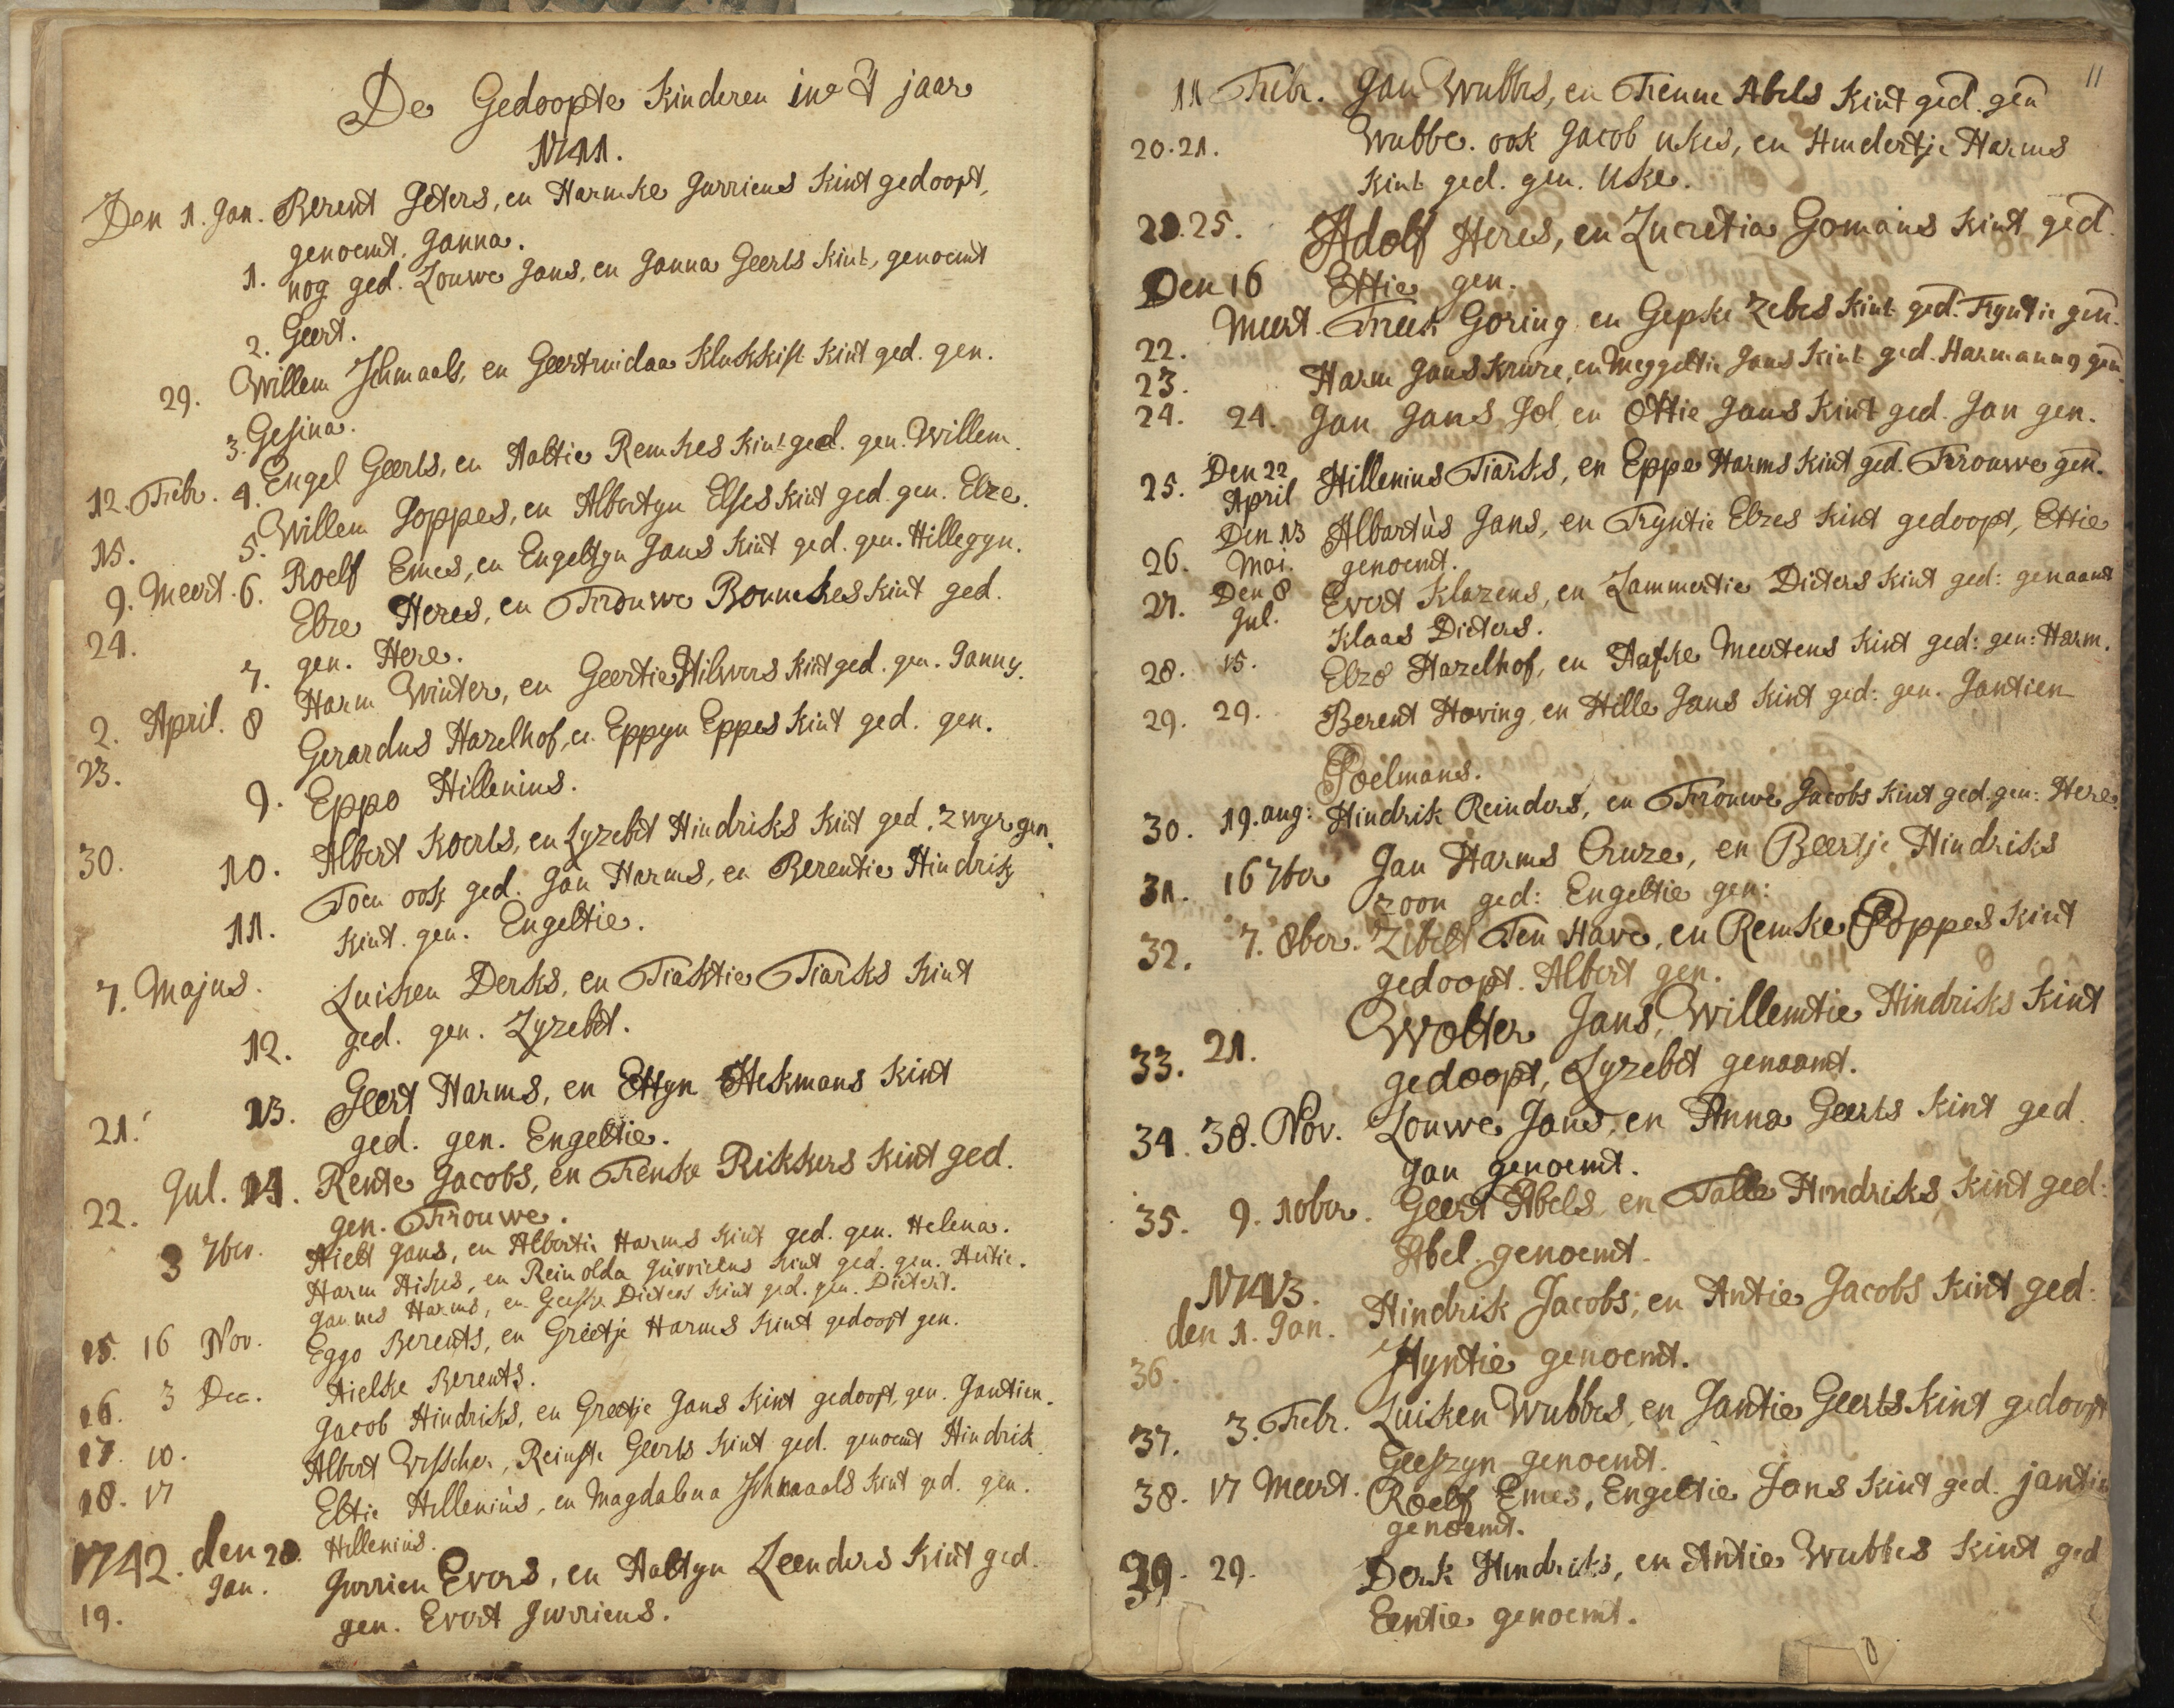 De Gedoopte Kinderen in 't jaar
1741.
Den 1. Jan. Berent Peters, en Harmke Jurriens Kint gedoopt,
genoemt, Janna.
1. nog ged. Louwe Jans, en Janna Geerts Kint, genoemt
2. Geert.
29. Willem Schmaals, en Geertruidaa Klukkist Kint ged. gen.
3. Gesina.
12. Febr. 4. Engel Geerts, en Aaltie Remkes Kint ged. gen. Willem.
15. 5. Willem Poppes, en Albertyn Elses Kint ged. gen. Elze.
9. Meert. 6. Roelf Emes, en Engeltyn Jans Kint ged. gen. Hillegyn.
24. Elze Heres, en Frouwe Bonnekes Kint ged.
7. gen. Here.
2. April. 8 Harm Winter, en Geertie Hilvers Kint ged. gen. Janny.
23. Gerardus Hazelhof, en Eppyn Eppes Kint ged. gen.
9. Eppo Hillenius.
30. 10. Albert Koerts, en Lyzebet Hindriks Kint ged. Zwyr gen.
Toen ook ged. Jan Harms, en Berentie Hindriks
11. Kint. gen. Engeltie.
7. Majus. Luiken Derks, en Tiaktie Tiarks Kint
12. ged. gen. Lyzebet.
21. 13. Geert Harms, en Ettyn Hekmans Kint
ged. gen. Engeltie.
22. Jul. 14. Rente Jacobs, en Trenske Rikkers Kint ged.
gen. Frouwe.
3 7ber. Hielt Jans, en Albertie Harms Kint ged. gen. Helena.
Harm Hikes, en Reinolda Jurriens Kint ged. gen. Antie.
Jannes Harms, en Geeske Dieters Kint ged. gen. Dietert.
15. 16 Nov. Eggo Berents, en Grietje Harms Kint gedoopt gen.
Hielke Berents.
16. 3 Dec. Jacob Hindriks, en Greetje Jans Kint gedoopt, gen. Jantien.
17. 10. Albert Visscher, Reinste Geerts Kint ged. genoemt Hindrik
18. 17 Eltie Hillenius, en Magdalena Schmaals Kint ged. gen.
Hillenius.
1742. den 28. Jan. Jurrien Evers, en Aaltyn Leenders Kint ged.
19. gen. Evert Jurriens.
11
11 Febr. Jan Wubbes, en Trenne Abels Kint ged. gen
20.21. Wubbe. ook Jacob Ukes, en Hindertje Harms
Kint ged. gen. Uke.
21.25. Adolf Heres, en Lucretia Gomans Kint ged.
Den 16 Ettie gen.
22. Meert. Freek Goring en Gepke Zebes Kint ged. Tryntie gen.
23. Harm Jans Krure, en Meggeltie Jans Kint ged. Harmanny gen.
24. 24. Jan Jans Pol en Ottie Jans Kint ged. Jan gen.
25. Den 22 April Hillenius Tiarks, en Eppe Harms Kint ged. Frouwe gen.
Den 13 Albartùs Jans, en Tryntie Elzes Kint gedoopt, Ettie
26. Mai. genoemt.
27. Den 8 Jul. Evert Klazens, en Lammertie Dieters Kint ged: genaamt
Klaas Dieters.
28. 15. Elzo Hazelhof, en Aafke Meertens Kint ged: gen: Harm.
29. 29. Berent Hoving, en Hille Jans Kint ged: gen. Jantien
Poelmans.
30. 19. aug: Hindrik Reinders, en Frouwe Jacobs Kint ged. gen: Here.
31. 16 7ber Jan Harms Cruze, en Beertje Hindriks
zoon ged: Engeltie gen:
32. 7. 8ber. Zibelt Ten Have, en Remke Poppes Kint
gedoopt. Albert gen.
33. 21. Wolter Jans, Willemtie Hindriks Kint
gedoopt, Lyzebet genaamt.
34. 38. Nov. Louwe Jans, en Anna Geerts Kint ged.
Jan genoemt.
35. 9. 10ber. Geert Abels, en Talle Hindriks Kint ged:
Abel. genoemt.
1743.
den 1. Jan. Hindrik Jacobs, en Antie Jacobs Kint ged:
36. Hyntie genoemt.
37. 3. Febr. Luiken Wubbes, en Jantie Geerts Kint gedoopt
Geeszyn genoemt.
38. 17 Meert. Roelf Emes, Engeltie Jans Kint ged. jantie
genoemt.
39. 29. Derk Hindriks, en Antie Wubbes Kint ged
Eentie genoemt.